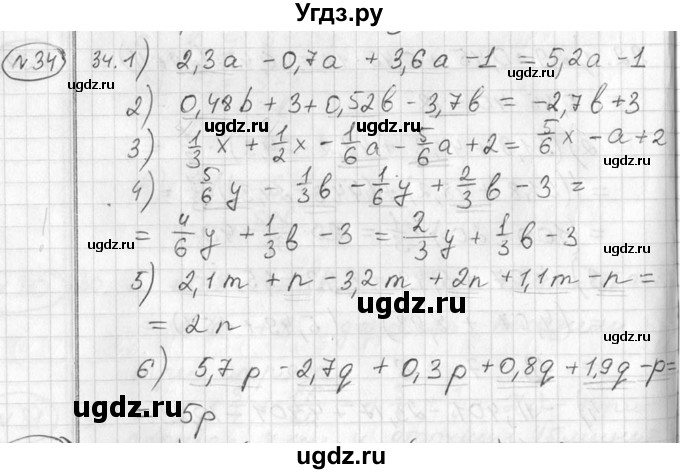 Угдз.ру
№34
34.1) 2,3a - 0,7a + 3,6a - 1 = 5,2a - 1
ugdz.ru
ugdz.ru
2) 0,48b + 3 + 0,52b - 3,7b = -2,7b + 3
ugdz.ru
ugdz.ru
3) 1/3 x + 1/2 x - 1/6 a - 5/6 a + 2 = 5/6 x - a + 2
4) 5/6 y - 1/3 b - 1/6 y + 2/3 b - 3 =
= 4/6 y + 1/3 b - 3 = 2/3 y + 1/3 b - 3
ugdz.ru
ugdz.ru
5) 2,1m + n - 3,2m + 2n + 1,1m - n =
ugdz.ru
= 2n
ugdz.ru
6) 5,7p - 2,7q + 0,3p + 0,8q + 1,9q - p =
ugdz.ru
5p
ugdz.ru
ugdz.ru